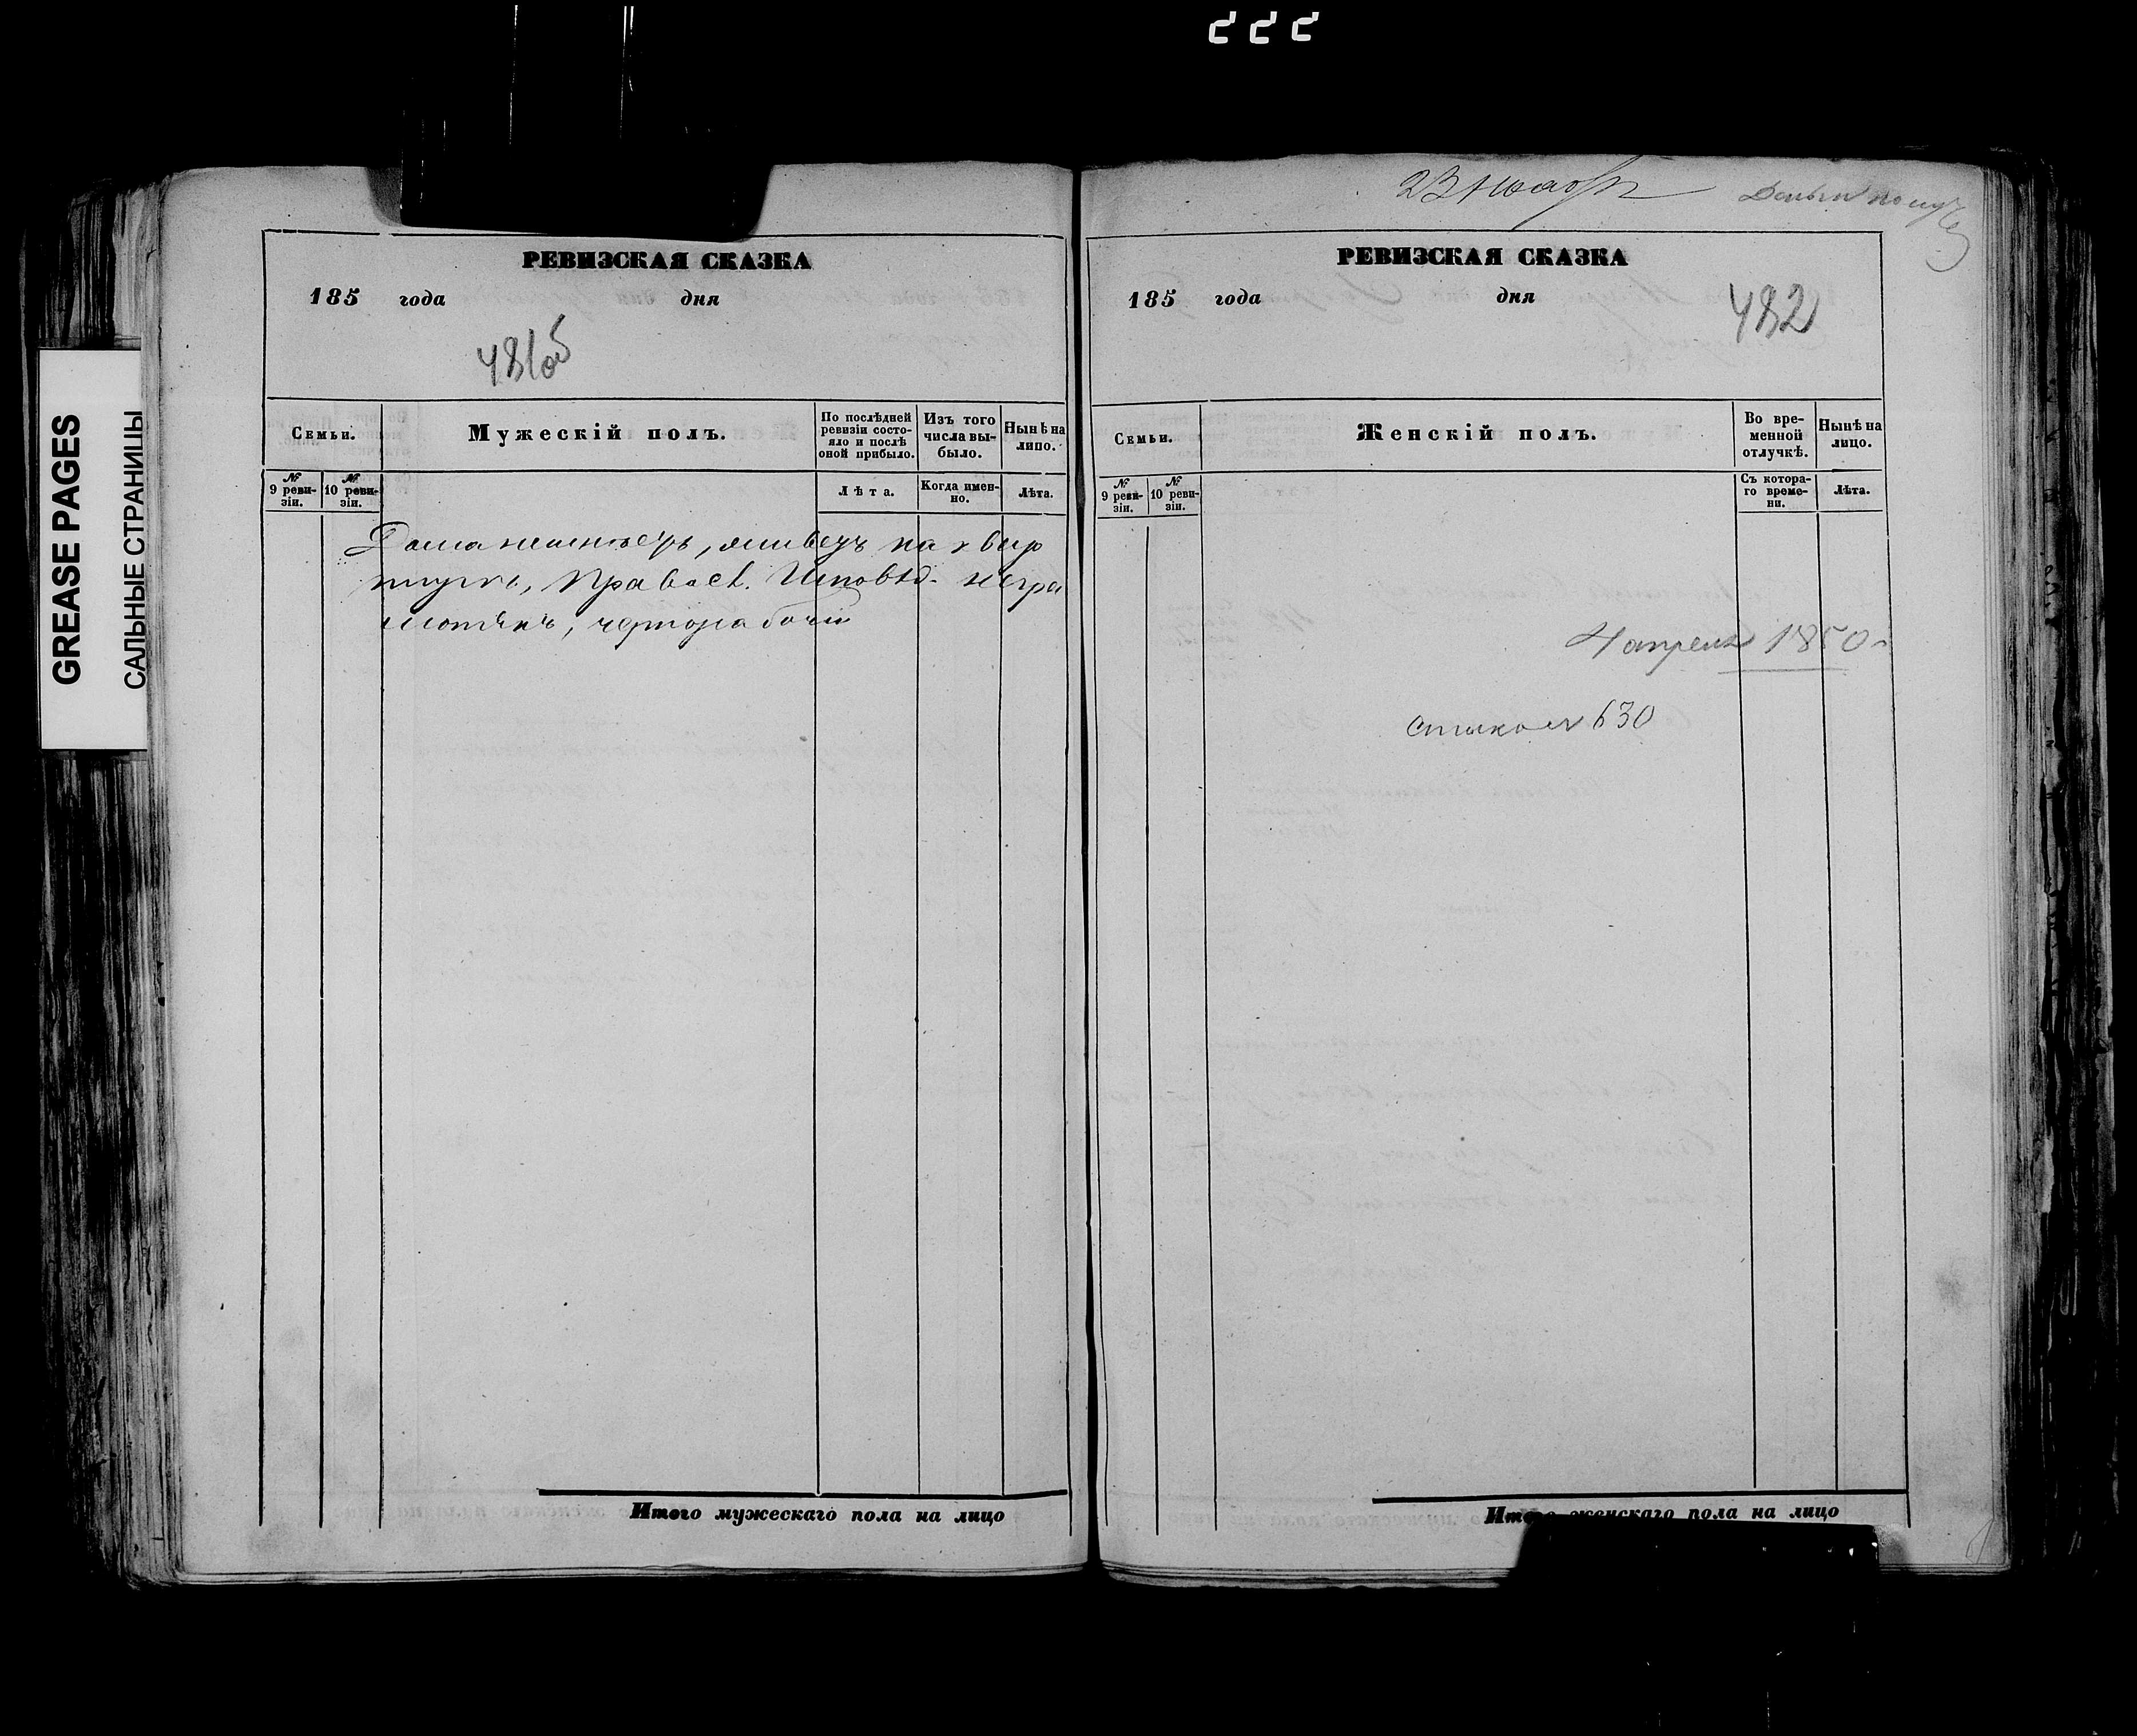 222
GREASE PAGES
САЛЬНЫЕ СТРАНИЦЫ
РЕВИЗСКАЯ СКАЗКА
185 года дня
481об
Семьи.
Мужескій полъ.
По послѣдней ревизіи состояло и послѣ оной прибыло.
Изъ того числа выбыло.
Нынѣ на лицо.
№ 9 ревизіи.
№ 10 ревизіи.
Лѣта.
Когда именно.
Лѣта.
Дома неимѣетъ, живетъ на квар
тирѣ, Правосл. Исповѣд. негра
мотенъ, чернорабочій
Итого мужескаго пола на лицо
23 ноября
Деньги получ
РЕВИЗСКАЯ СКАЗКА
185 года дня
482
Семьи.
Женскій полъ.
Во временной отлучкѣ.
Нынѣ на лицо.
№ 9 ревизіи.
№ 10 ревизіи.
Съ котораго времени.
Лѣта.
4 апреля 1850 г
630
Итого женскаго пола на лицо